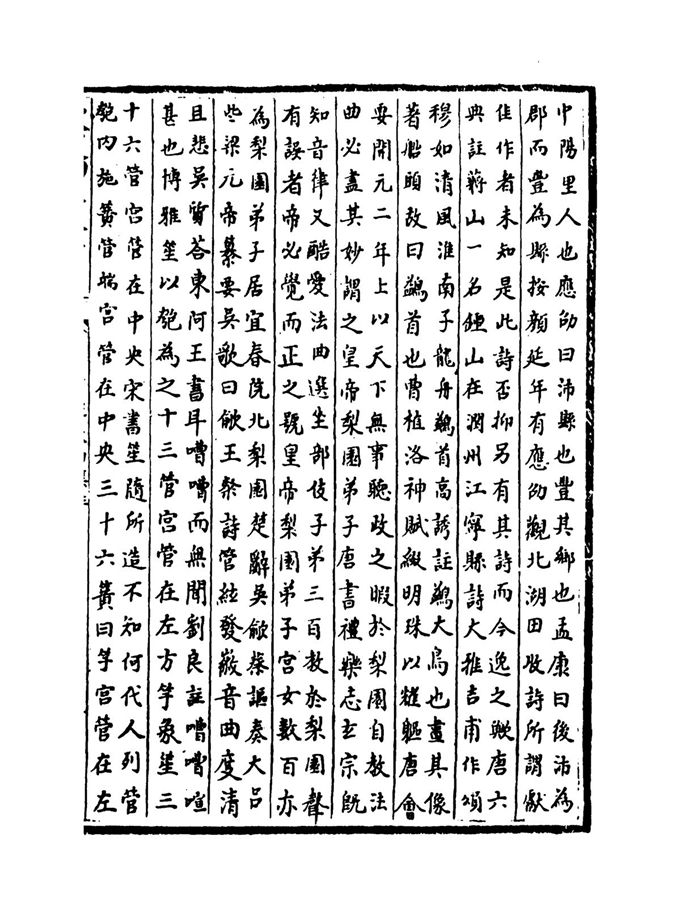 中陽里人也應劭曰沛縣也豐其鄉也孟康曰後沛為
郡而豐為縣按顔延年有應劭觀北湖田收詩所謂獻
佳作者未知是此詩否抑另有其詩而今逸之歟唐六
典註蔣山一名鍾山在潤州江寧縣詩大雅吉甫作頌
穆如清風淮南子龍舟鷁首高誘註鷁大鳥也畫其像
著船頭故曰鷁首也曹植洛神賦綴明珠以耀軀唐會
要開元二年上以天下無事聽政之暇於梨園自教法
曲必盡其妙謂之皇帝梨園弟子唐書禮樂志玄宗既
知音律又酷愛法曲選坐部伎子弟三百教於梨園聲
有誤者帝必覺而正之號皇帝梨園弟子宮女數百亦
為梨園弟子居宜春院北梨園楚辭吳歈蔡謳奏大呂
些梁元帝纂要吳歌曰歈王粲詩管絃發徽音曲度清
且悲吳質荅東阿王書耳嘈嘈而無聞劉良註嘈嘈喧
甚也博雅笙以匏為之十三管宮管在左方竽象笙三
十六管宮管在中央宋書笙隨所造不知何代人列管
匏内施簧管端宮管在中央三十六簧曰竽宮管在左